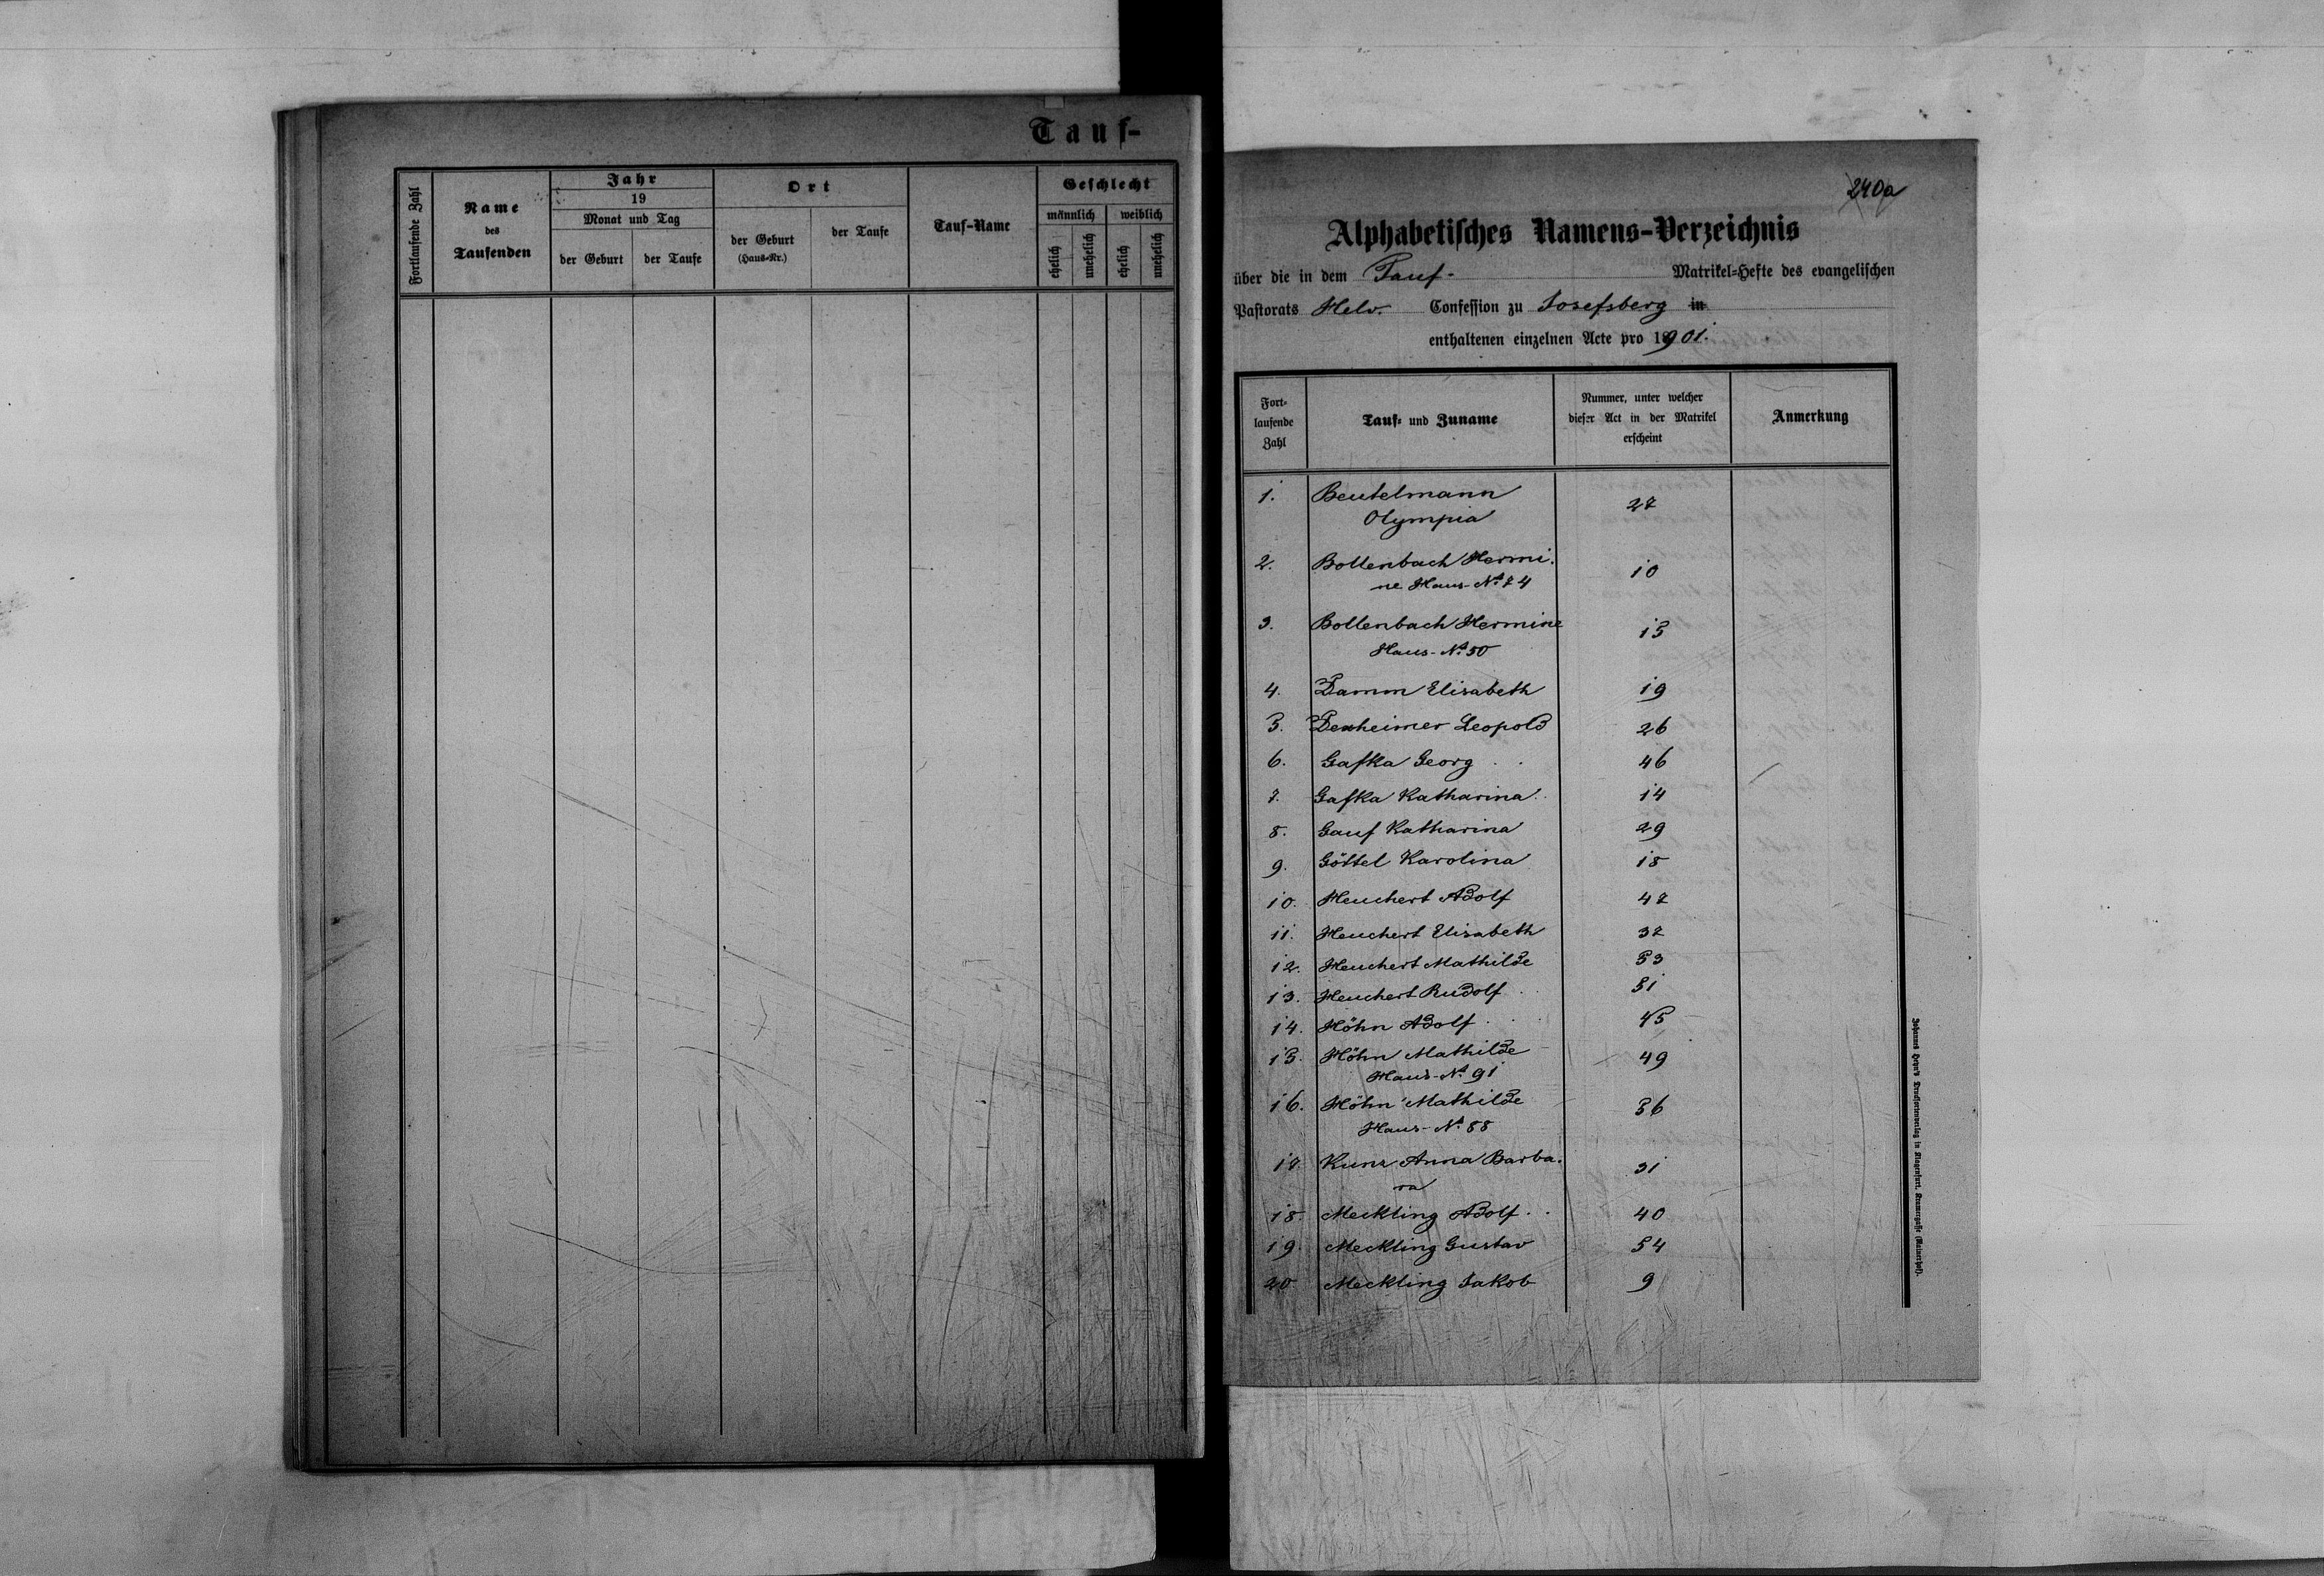 Tauf-
Fortlaufende Zahl
Name
des
Taufenden
Jahr
19
Monat und Tag
der Geburt
der Taufe
Ort
der Geburt
(Haus-Nr.)
der Taufe
Tauf-Name
Geschlecht
männlich
weiblich
ehelich
unehelich
ehelich
unehelich
240a
Alphabetisches Namens-Verzeichnis
über die in dem Tauf- Matrikel-Hefte des evangelischen
Pastorats Helv. Confession zu Josefsberg in
enthaltenen einzelnen Acte pro 1901.
Fort-
laufende
Zahl
Tauf- und Zuname
Nummer, unter welcher
dieser Act in der Matrikel
erscheint
Anmerkung
1. Beutelmann
Olympia 27
2. Bollenbach Hermi-
ne Haus-No 74 10
3. Bollenbach Hermine
Haus-No 50 15
4. Damm Elisabeth 19
5. Dexheimer Leopold 26
6. Gafka Georg 46
7. Gafka Katharina 14
8. Gauf Katharina 29
9. Göttel Karolina 18
10. Heuchert Adolf 47
11. Heuchert Elisabeth 37
12. Heuchert Mathilde 53
13. Heuchert Rudolf 51
14. Höhn Adolf 45
15. Höhn Mathilde
Haus-No 91 49
16. Höhn Mathilde
Haus-No 88 56
17. Kunz Anna Barba-
ra 31
18. Meckling Adolf 40
19. Meckling Gustav 54
20 Meckling Jakob 9
Johannes Heyn's Drucksortenverlag in Klagenfurt, Kramergasse (Rainerhof).